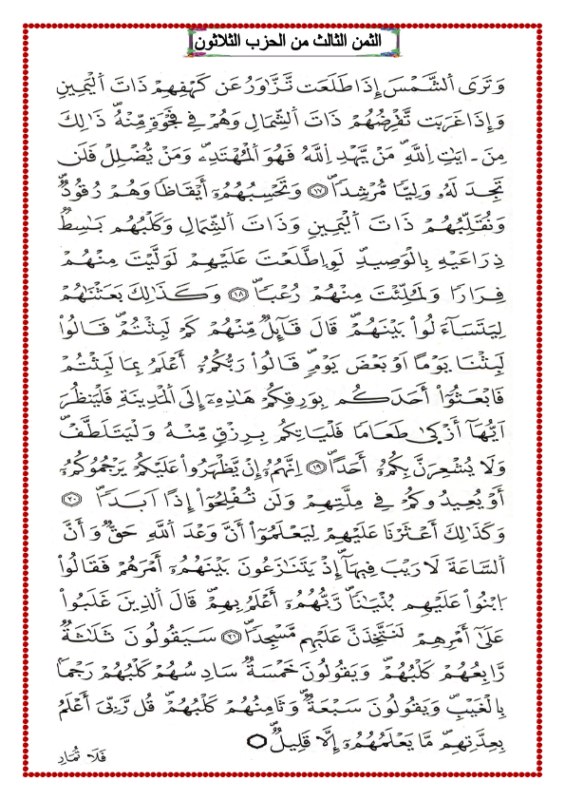 الثمن الثالث من الحزب الثلاثون
وَتَرَى اَ۬لشَّمْسَ إِذَا طَلَعَت تَّزَّٰوَرُ عَن كَهْفِهِمْ ذَاتَ اَ۬لْيَمِينِ
وَإِذَا غَرَبَت تَّقْرِضُهُمْ ذَاتَ اَ۬لشِّمَالِ وَهُمْ فِے فَجْوَةٖ مِّنْهُۖ ذَٰلِكَ
مِنَ اٰيَٰتِ اِ۬للَّهِۖ مَنْ يَّهْدِ اِ۬للَّهُ فَهُوَ اَ۬لْمُهْتَدِۦۖ وَمَنْ يُّضْلِلْ فَلَن
تَجِدَ لَهُۥ وَلِيّاٗ مُّرْشِداٗۖ ١٧ وَتَحْسِبُهُمُۥٓ أَيْقَاظاٗ وَهُمْ رُقُودٞۖ
وَنُقَلِّبُهُمْ ذَاتَ اَ۬لْيَمِينِ وَذَاتَ اَ۬لشِّمَالِ وَكَلْبُهُم بَٰسِطٞ
ذِرَاعَيْهِ بِالْوَصِيدِۖ لَوِ اِ۪طَّلَعْتَ عَلَيْهِمْ لَوَلَّيْتَ مِنْهُمْ
فِرَاراٗ وَلَمُلِّئْتَ مِنْهُمْ رُعْباٗۖ ١٨ وَكَذَٰلِكَ بَعَثْنَٰهُمْ
لِيَتَسَآءَلُواْ بَيْنَهُمْۖ قَالَ قَآئِلٞ مِّنْهُمْ كَمْ لَبِثْتُمْۖ قَالُواْ
لَبِثْنَا يَوْماً اَوْ بَعْضَ يَوْمٖۖ قَالُواْ رَبُّكُمُۥٓ أَعْلَمُ بِمَا لَبِثْتُمْ
فَابْعَثُوٓاْ أَحَدَكُم بِوَرِقِكُمْ هَٰذِهِۦٓ إِلَى اَ۬لْمَدِينَةِ فَلْيَنظُرَ
اَيُّهَآ أَزْكَىٰ طَعَاماٗ فَلْيَاتِكُم بِرِزْقٖ مِّنْهُ وَلْيَتَلَطَّفْۖ
وَلَا يُشْعِرَنَّ بِكُمُۥٓ أَحَداًۖ ١٩ اِنَّهُمُۥٓ إِنْ يَّظْهَرُواْ عَلَيْكُمْ يَرْجُمُوكُمُۥٓ
أَوْ يُعِيدُوكُمْ فِے مِلَّتِهِمْ وَلَن تُفْلِحُوٓاْ إِذاً اَبَداٗۖ ٢٠
وَكَذَٰلِكَ أَعْثَرْنَا عَلَيْهِمْ لِيَعْلَمُوٓاْ أَنَّ وَعْدَ اَ۬للَّهِ حَقّٞ وَأَنَّ
اَ۬لسَّاعَةَ لَا رَيْبَ فِيهَآۖ إِذْ يَتَنَٰزَعُونَ بَيْنَهُمُۥٓ أَمْرَهُمْ فَقَالُواْ
اُ۪بْنُواْ عَلَيْهِم بُنْيَٰناٗۖ رَّبُّهُمُۥٓ أَعْلَمُ بِهِمْۖ قَالَ اَ۬لذِينَ غَلَبُواْ
عَلَىٰٓ أَمْرِهِمْ لَنَتَّخِذَنَّ عَلَيْهِم مَّسْجِداٗۖ ٢١ سَيَقُولُونَ ثَلَٰثَةٞ
رَّابِعُهُمْ كَلْبُهُمْۖ وَيَقُولُونَ خَمْسَةٞ سَادِسُهُمْ كَلْبُهُمْ رَجْماَۢ
بِالْغَيْبِۖ وَيَقُولُونَ سَبْعَةٞ وَثَامِنُهُمْ كَلْبُهُمْۖ قُل رَّبِّيَ أَعْلَمُ
بِعِدَّتِهِم مَّا يَعْلَمُهُمُۥٓ إِلَّا قَلِيلٞۖ
فَلَا تُمَارِ